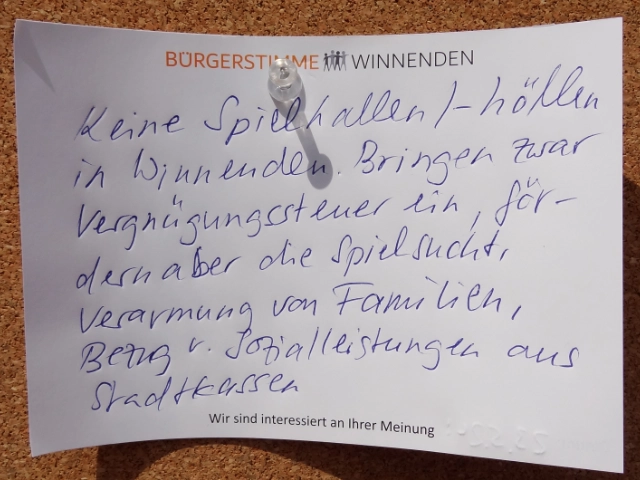 BÜRGERSTIMME WINNENDEN
Keine Spielhallen/-höllen
in Winnenden. Bringen zwar
Vergnügungssteuer ein, för-
dern aber die Spielsucht,
Verarmung von Familien,
Bezug v. Sozialleistungen aus
Stadtkassen
Wir sind interessiert an Ihrer Meinung